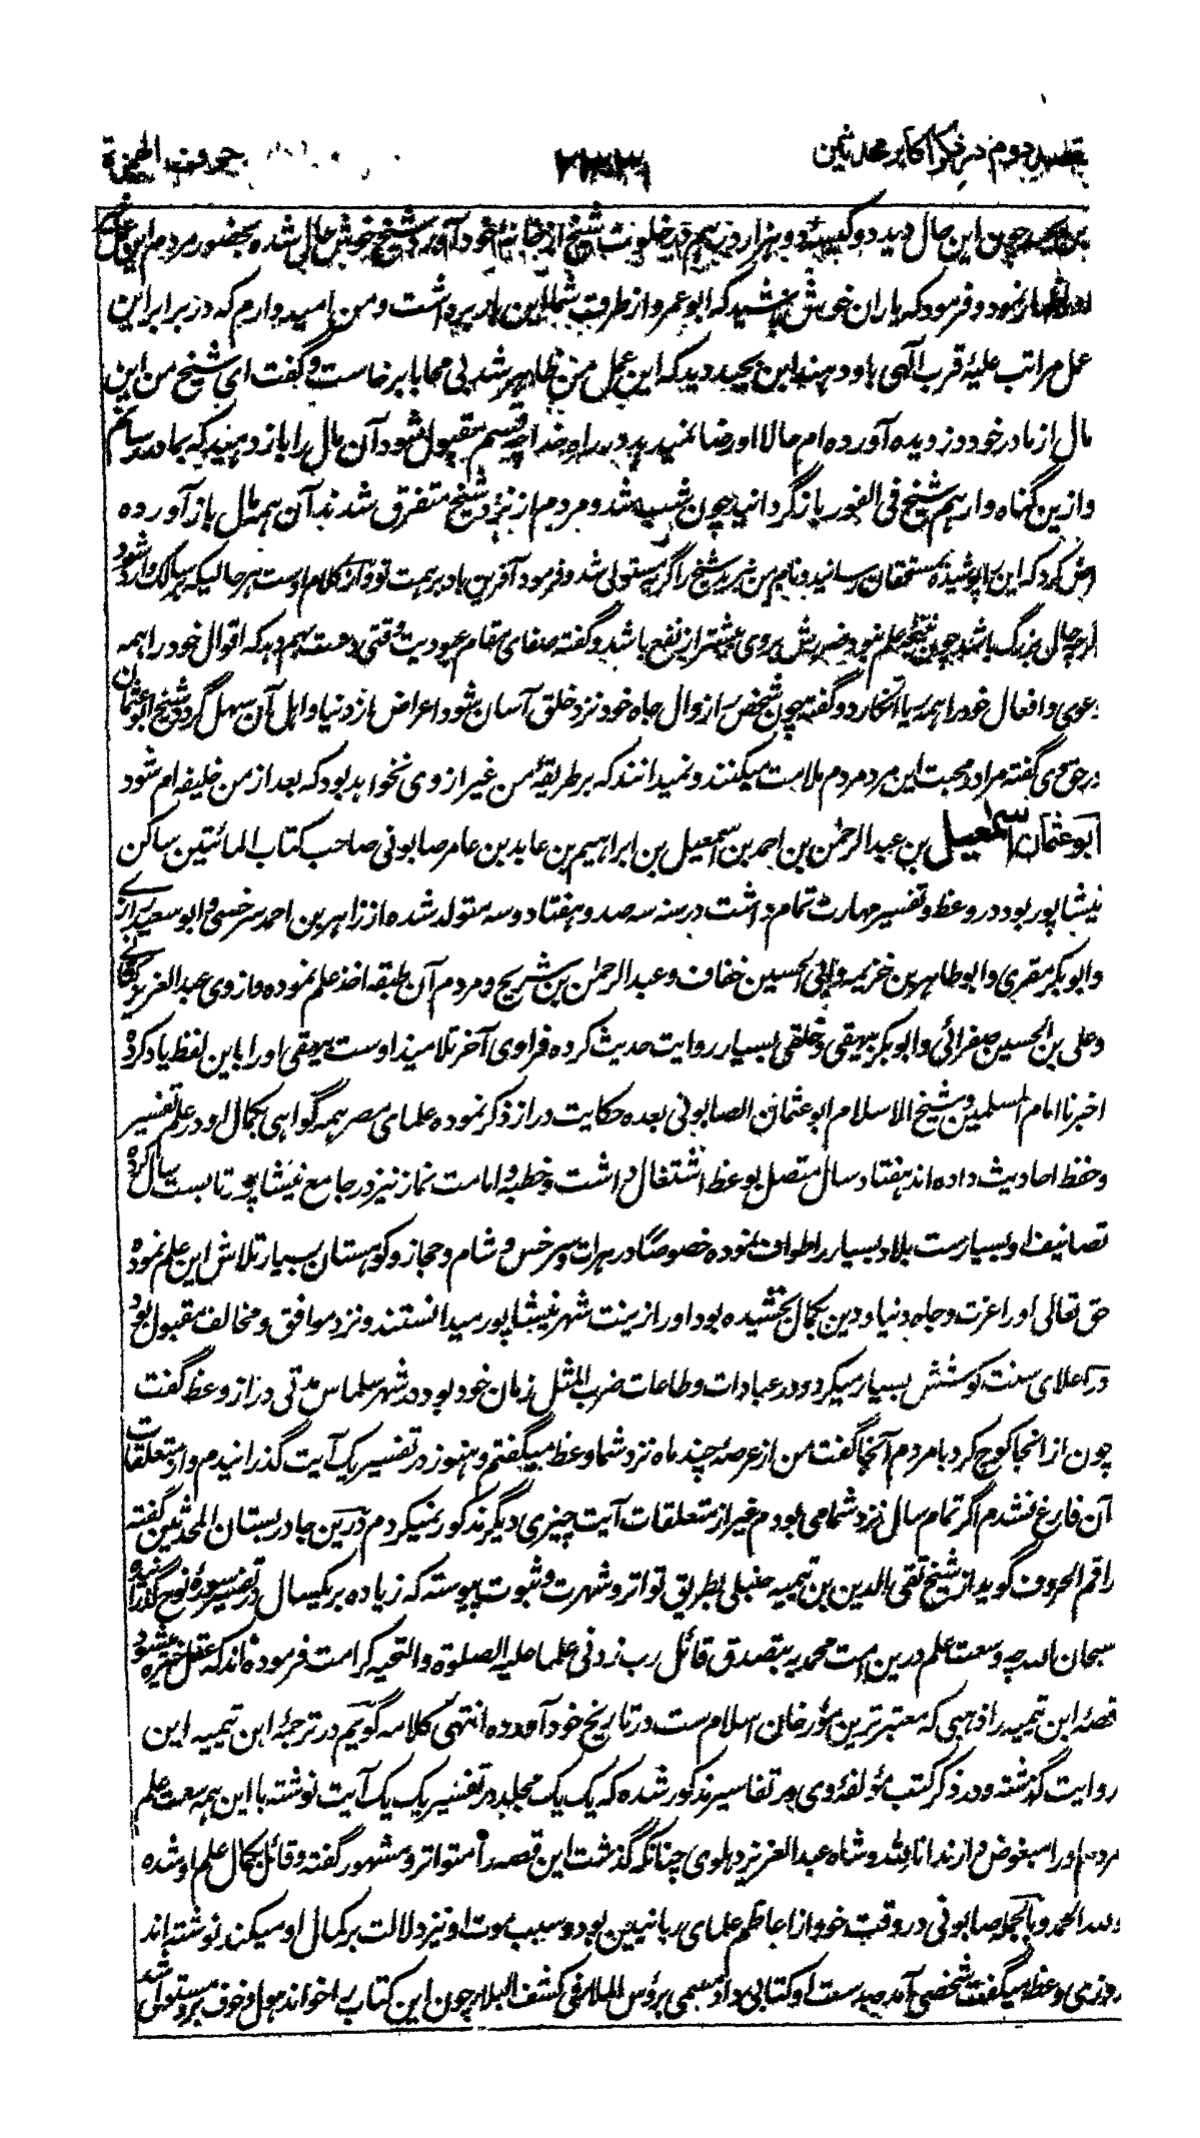 مقصد دوم در ذکر اکابر محدثین ۲۳۳ حرف الهمزة
چون این حال دید دو کیسه دو هزار درهم در خلوت شیخ از خانه خود آورد شیخ خوش حال شده بحضور مردم این عمل
نمود و فرمود که یاران خوش باشید که ابو عمرو از طرف شما این بار برداشت و من امیدوارم که در برابر این
عمل مراتب علیهٔ قرب الهی باو دهند ابن نجید دید که این عمل من ظاهر شد بی محابا برخاست و گفت ای شیخ من این
مال از مادر خود دزدیده آورده ام حالا او رضا نمیدهد در راه خدا چه قسم مقبول شود آن مال را باز دهید که بمادر رسانم
و ازین گناه وارهم شیخ فی الفور باز گردانید چون شب شد و مردم از نزد شیخ متفرق شدند آن همه مال باز آورده
عرض کرد که این را پوشیده بمستحقان رسانید و نام من نبرید شیخ را گریه مستولی شد و فرمود آفرین باد بر همت تو و از کلام اوست هر حالیکه بر سالک وارد شود
اگرچه حال بزرگ باشد چون نتیجه علم نبود ضررش بروی بیشتر از نفع باشد و گفته صفای مقام عبودیت وقتی دست بهم دهد که اقوال خود را همه
دعوی و افعال خود را همه ریا انگارد و گفته چون شخص را زوال جاه خود نزد خلق آسان شود اعراض از دنیا و اهل آن سهل گردد شیخ ابو عثمان
در حق وی گفته مرا در محبت این مرد مردم ملامت میکنند و نمیدانند که بر طریقهٔ من غیر از وی نخواهد بود که بعد از من خلیفه ام شود
ابو عثمان اسمعیل بن عبد الرحمن بن احمد بن اسمعیل بن ابراهیم بن عابد بن عامر صابونی صاحب کتاب المائتین ساکن
نیشاپور بود در وعظ و تفسیر مهارت تمام داشت در سنه سه صد و هفتاد و سه متولد شده از زاهر بن احمد سرخسی و ابو سعید رازی
و ابو بکر مقری و ابو طاهر بن خزیمه و ابی الحسین خفاف و عبد الرحمن بن شریح و مردم آن طبقه اخذ علم نموده و از وی عبد العزیز کتانی
و علی بن الحسین صفرائی و ابو بکر بیهقی و خلقی بسیار روایت حدیث کرده فراوی آخر تلامیذ اوست بیهقی او را باین لفظ یاد کرده
اخبرنا امام المسلمین و شیخ الاسلام ابو عثمان الصابونی بعده حکایت دراز ذکر نموده علمای مصر همه گواهی بکمال او در علم تفسیر
و حفظ احادیث داده اند هفتاد سال متصل بوعظ اشتغال داشت و خطبه و امامت نماز نیز در جامع نیشاپور تا بست سال کرده
تصانیف او بسیارست بلاد بسیار را طواف نموده خصوصاً در هرات و سرخس و شام و حجاز و کوهستان بسیار تلاش این علم نموده
حق تعالی او را عزت و جاه دنیا و دین بکمال بخشیده بود او را زینت شهر نیشاپور میدانستند و نزد موافق و مخالف مقبول بود
در اعلای سنت کوشش بسیار میکرد و در عبادات و طاعات ضرب المثل زمان خود بود در شهر سلماس مدتی دراز وعظ گفت
چون از انجا کوچ کرد با مردم آنجا گفت من از عرصهٔ چند ماه نزد شما وعظ میگفتم و هنوز در تفسیر یک آیت گذرانیدم و از متعلقات
آن فارغ نشدم اگر تمام سال نزد شما می بودم غیر از متعلقات آیت چیزی دیگر مذکور نمیکردم درین جا در بستان المحدثین گفته
راقم الحروف گوید از شیخ تقی الدین بن تیمیه حنبلی بطریق تواتر و شهرت و ثبوت پیوسته که زیاده بر یکسال در تفسیر سورهٔ نوح گذرانیده
سبحان الله چه وسعت علم درین امت محمدیه بتصدق قائل رب زدنی علما علیه الصلوة والتحیه کرامت فرموده اند که عقل خیره میشود
قصهٔ ابن تیمیه را ذهبی که معتبرترین مؤرخان اسلام ست در تاریخ خود آورده انتهی کلامه گویم در ترجمهٔ ابن تیمیه این
روایت گذشته و در ذکر کتب مؤلفهٔ وی در تفاسیر مذکور شده که یک یک مجلد در تفسیر یک یک آیت نوشته با این همه سعت علم
مردم او را مبغوض دارند انا لله و شاه عبد العزیز دهلوی چنانکه گذشت این قصه را متواتر و مشهور گفته و قائل بکمال علم او شده
ولله الحمد و بالجمله صابونی در وقت خود از اعاظم علمای ربانیین بود و سبب موت او نیز دلالت بر کمال او میکند نوشته اند
روزی وعظ میگفت شخصی آمد بدست او کتابی داد مسمی برؤس الملا فی کشف البلا چون این کتاب را خواند هول و خوف برو مستولی شد